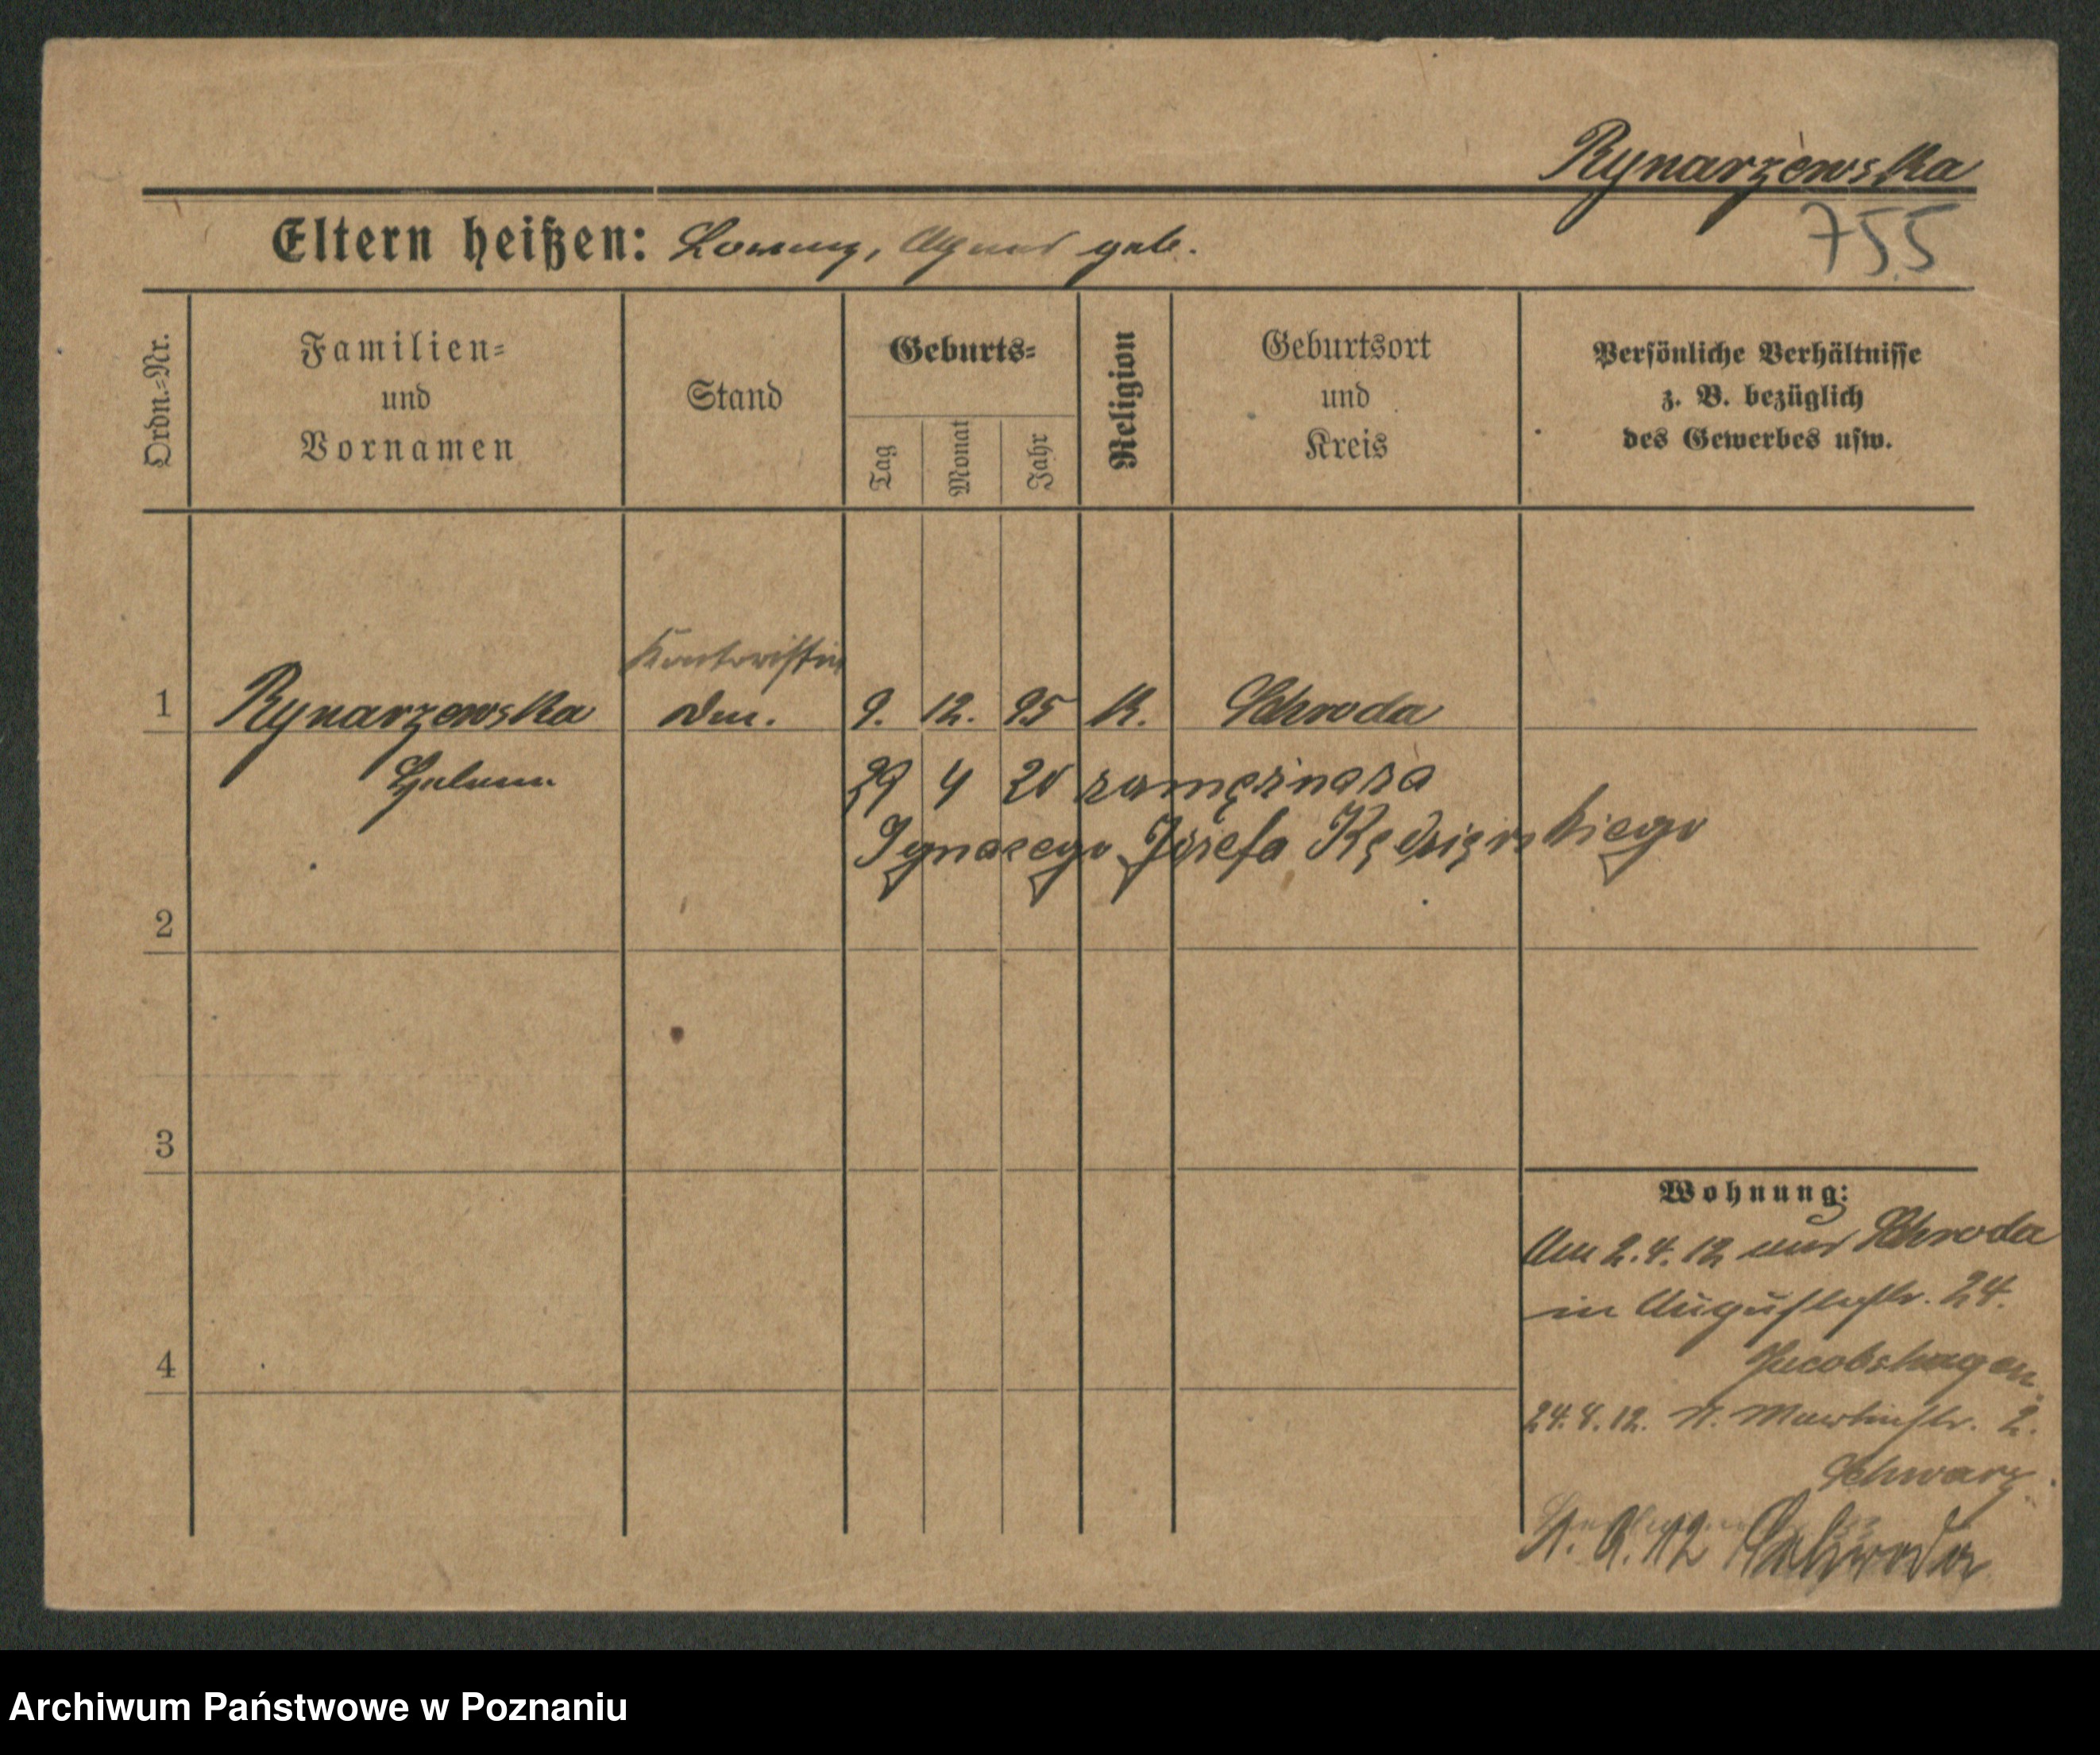 Rynarzewska
755
Eltern heißen: Lorenz, Agnes geb.
Ordn.=Nr.
Familien=
und
Vornamen
Stand
Geburts=
Tag
Monat
Jahr
Religion
Geburtsort
und
Kreis
Persönliche Verhältnisse
z. B. bezüglich
des Gewerbes usw.
Kontoristin
1 Rynarzewska 9. 12. 95 K. Schroda
Helene
29 4 20 zamężna za
Ignacego Józefa Kędzierskiego
2
3
4
Wohnung:
Am 2.4.12 aus Schroda
in Augustastr. 24.
Jacobshagen.
24.4.12. St. Martinstr. 2.
Schwarz.
12 Schroda
Archiwum Państwowe w Poznaniu